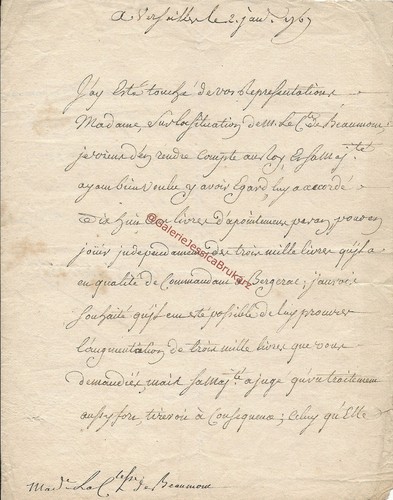 A Versailles le 2. janv. 1767
J'ay Esté touché de vos Representations
Madame, sur la situation de M. Le Cte. de Beaumont,
je viens d'en rendre compte au roy Et sa Maj.té
ayant bien voulu y avoir Egard luy a accordé
Dix huit livres d'apointemens par an pour en
joüir independamment des trois mille livres qu'il a
en qualité de Commandant Bergerac; j'aurois
souhaité qu'il eut esté possible de luy procurer
l'augmentation de trois mille livres que vous
demandiés, mais sa Maj.té a jugé qu'un traitement
aussy fort tireroit à Consequence; celuy qu'Elle
Made. La C.tesse de Beaumont
@GalerieJessicaBrukarz